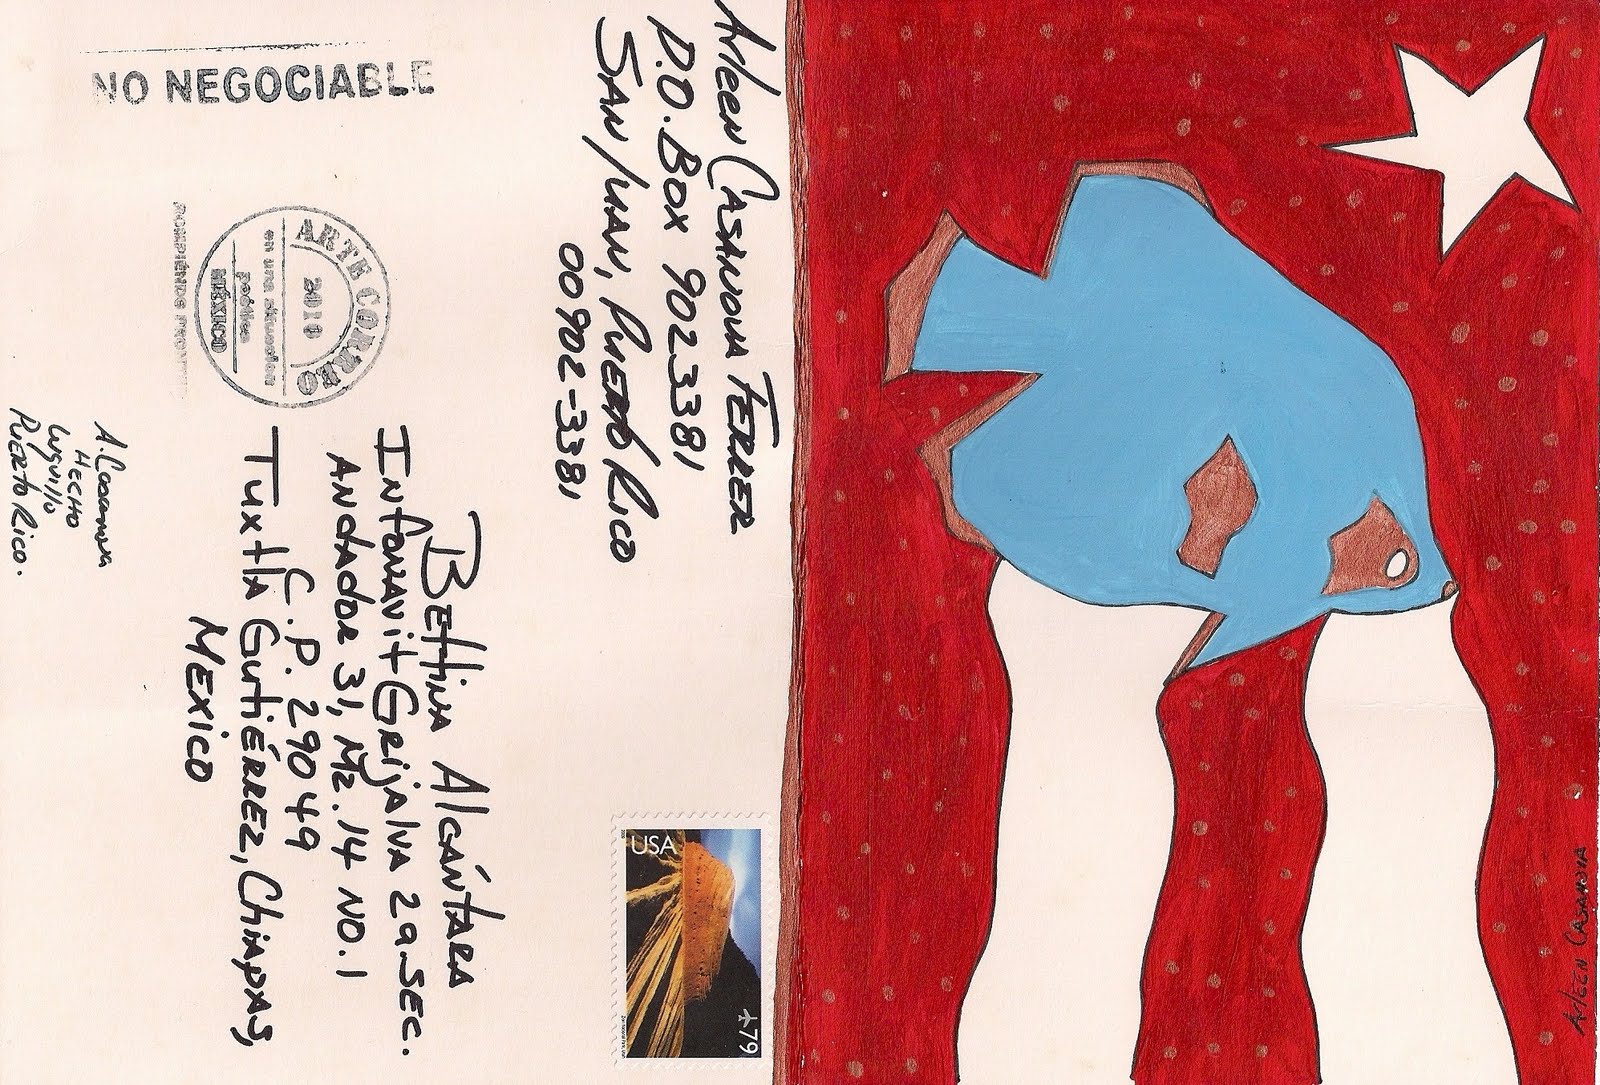 Arleen Casanova Ferrer
P.O. Box 9023381
San Juan, Puerto Rico
00902-3381
NO NEGOCIABLE
ARTE CORREO
2010
en una situación
poética
MÉXICO
ROMPIENDO
Bettina Alcántara
Infonavit Grijalva 2a. Sec.
Andador 31, Mz. 14 No. 1
C.P. 29049
Tuxtla Gutiérrez, Chiapas,
Mexico
A. Casanova
Hecho
Luquillo
Puerto Rico.
USA
79
Arleen Casanova